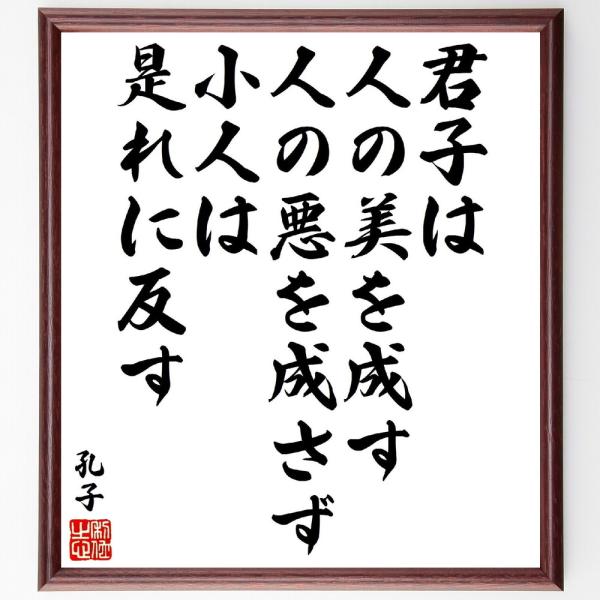 君子は
人の美を成す
人の悪を成さず
小人は
是れに反す
孔子